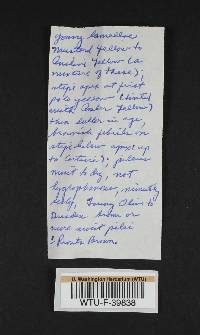 young lamellae
Mustard Yellow to
Yellow (a
mixture of these);
stipe apex at first
pale yellow (tinted
with Amber Yellow)
then duller in age,
brownish fibrils on
stipe below apex up
to cortina?; pileus
moist to dry, not
hygrophanous, minutely
scaly, Tawny Olive to
Dresden Brown or
more
? Prouts Brown.
U. Washington Herbarium (WTU)
WTU-F-39838